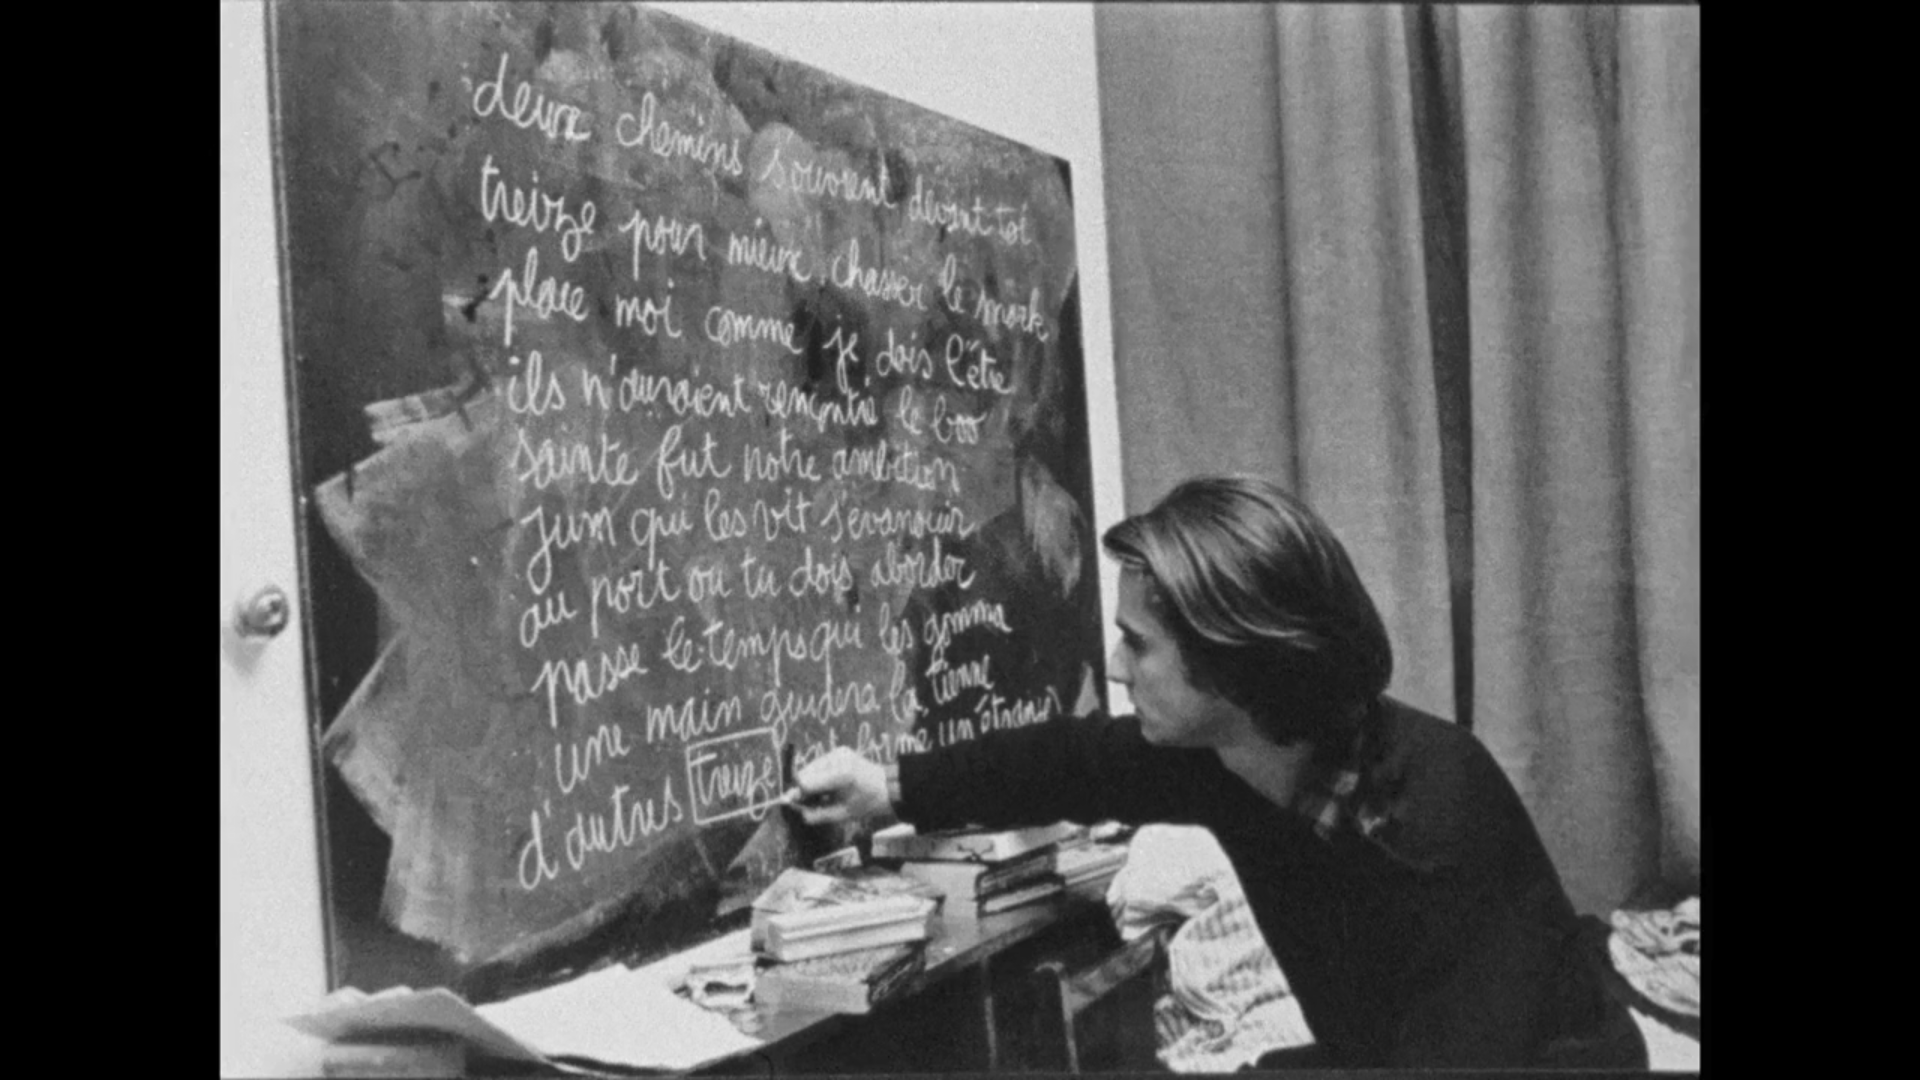 deux chemins s'ouvrent devant toi
treize pour mieux chasser le snark
place moi comme je dois l'être
ils n'auraient rencontré le boo
sainte fut notre ambition
jum qui les vit s'évanouir
au port ou tu dois aborder
passe le temps qui les gomma
une main guidera la tienne
d'autres treize ont formé un étrange